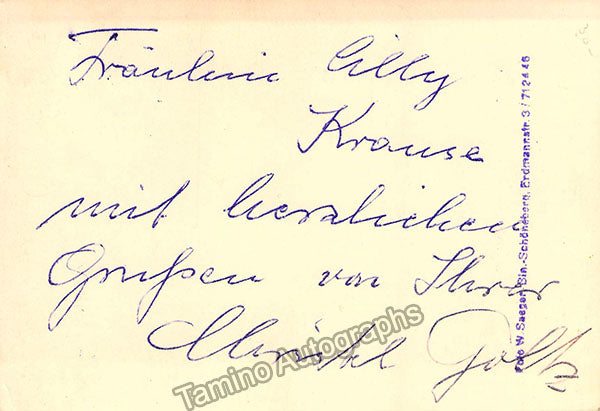 Fräulein Cilly
Krause
mit herzlichen
Grüßen von Ihrer
Christel Goltz
Foto W. Saeger, Bln.-Schöneberg, Erdmannstr. 3 / 71 24 46
Tamino Autographs